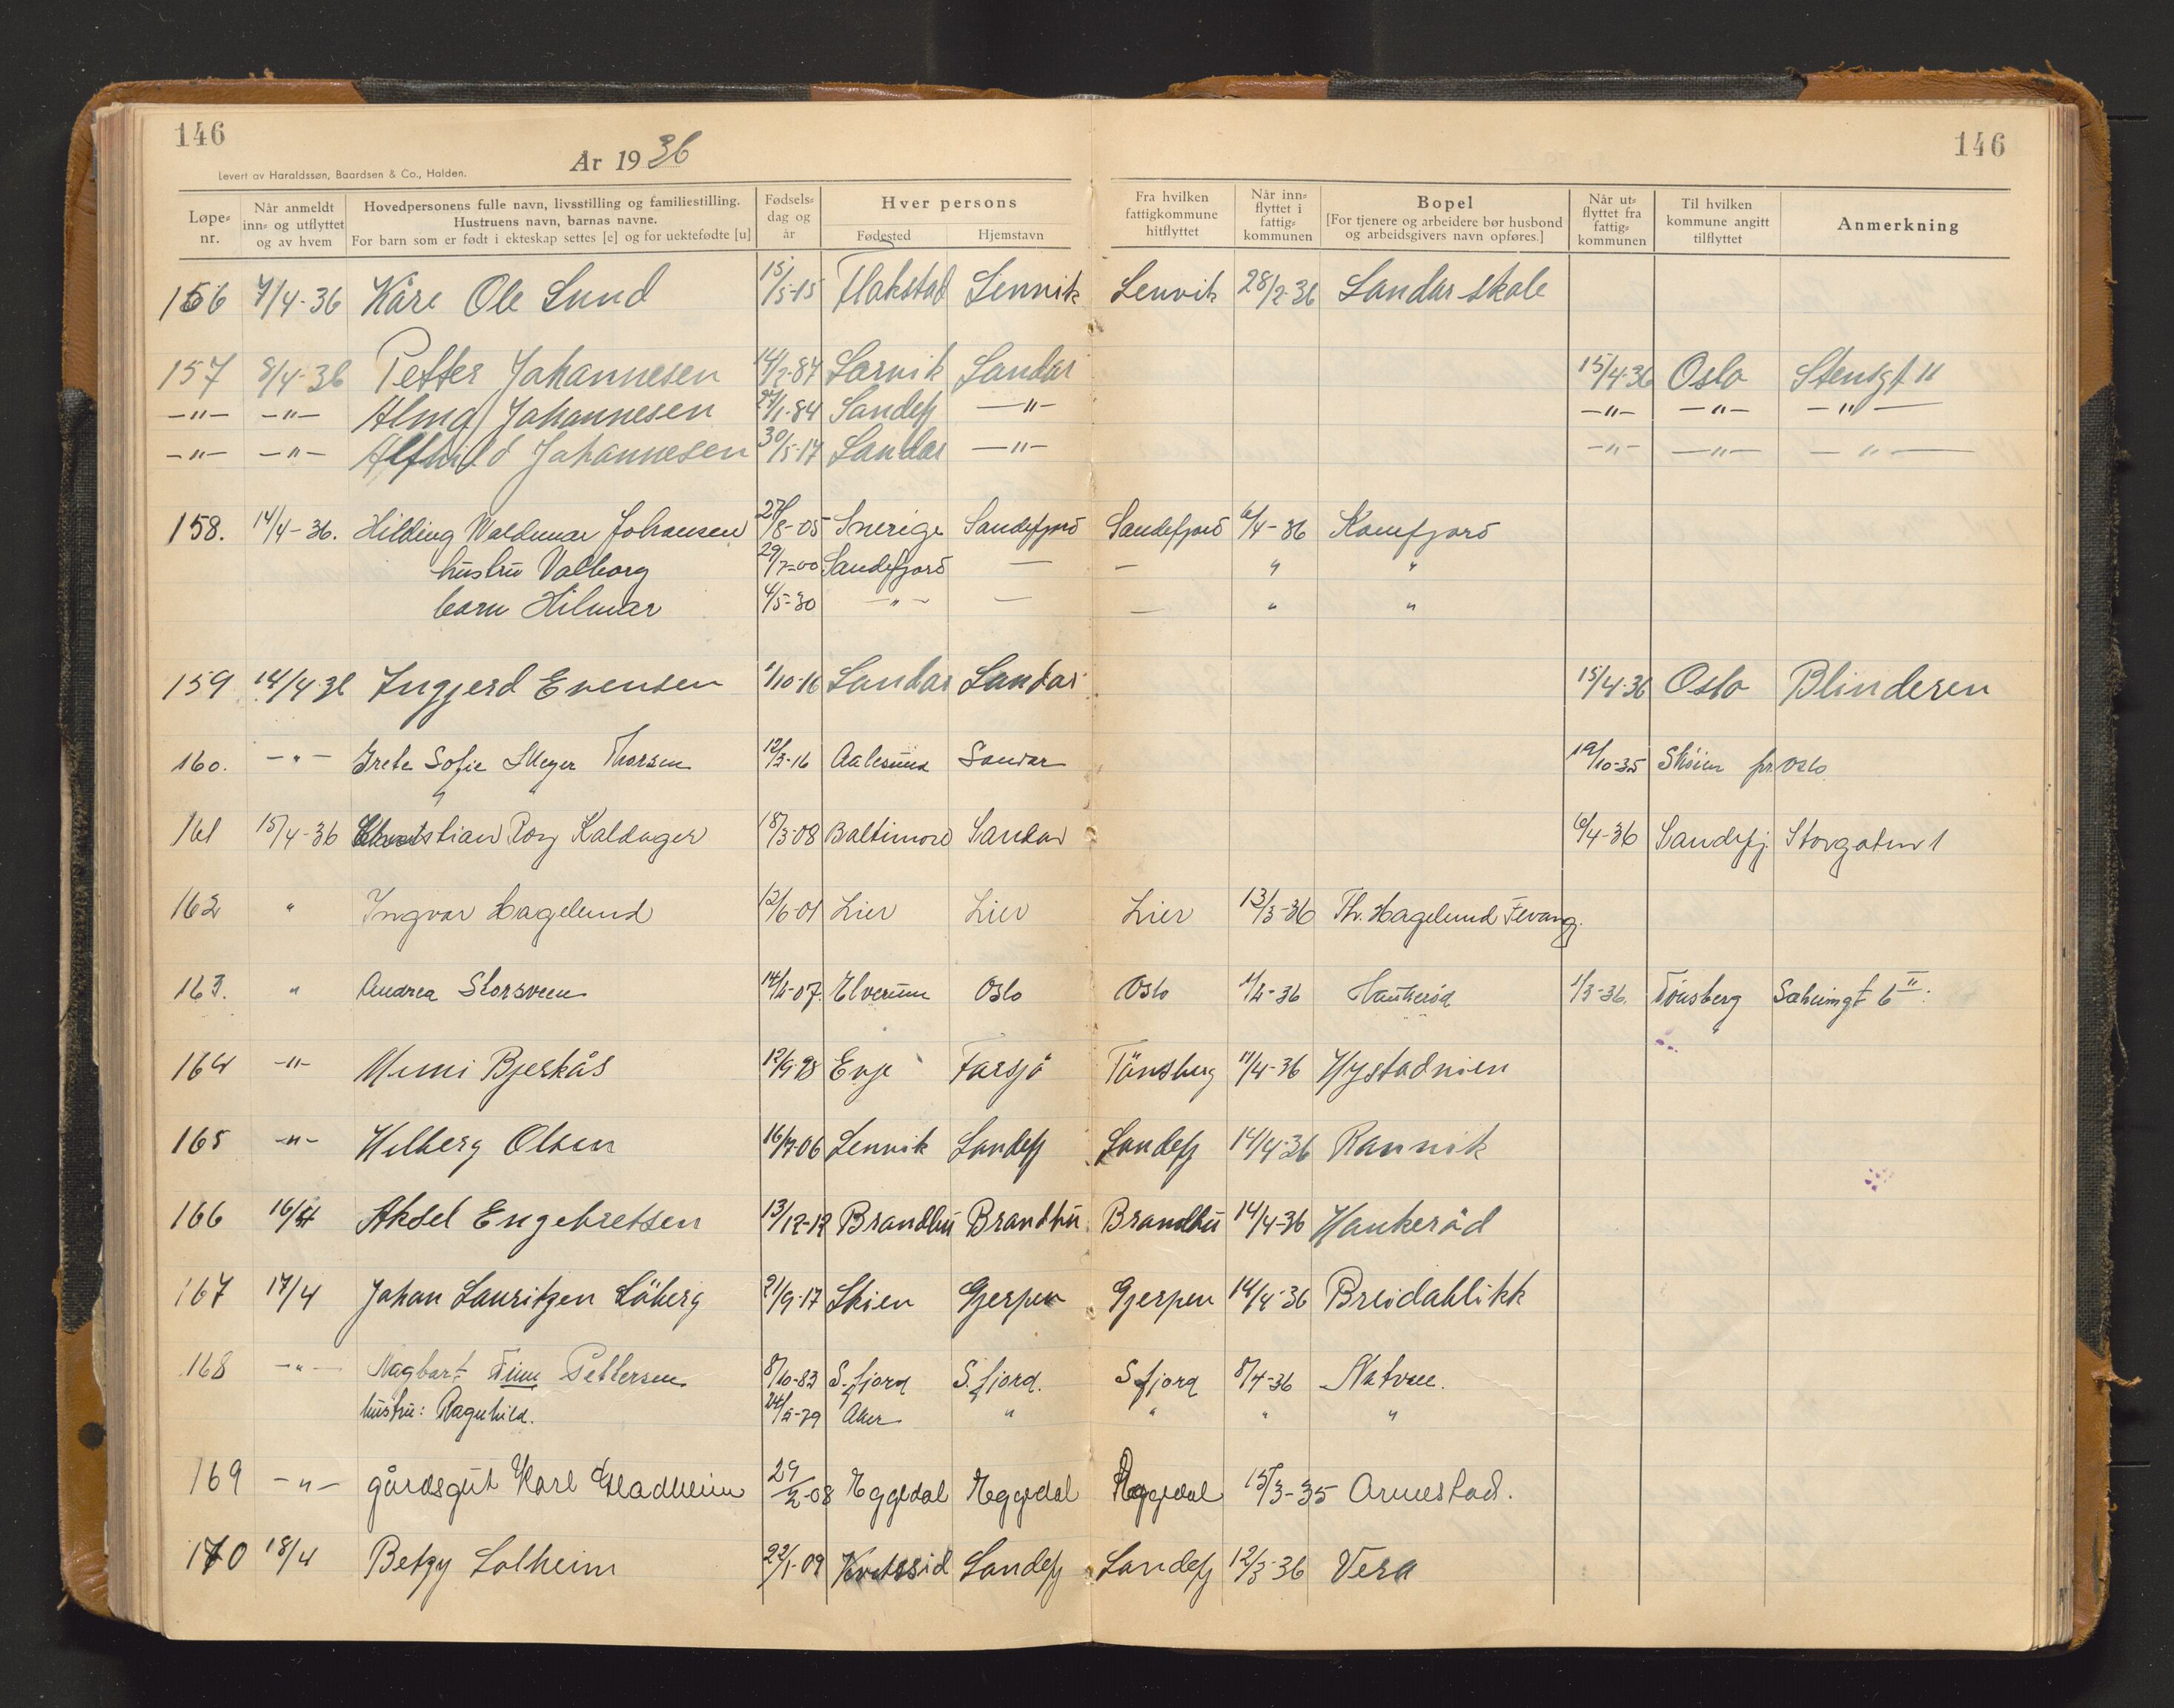 146
146
År 1936
Levert av Haraldssøn, Baardsen & Co., Halden.
Løpe-nr. | Når anmeldt inn- og utflyttet og av hvem | Hovedpersonens fulle navn, livsstilling og familiestilling. Hustruens navn, barnas navne. For barn som er født i ekteskap settes [e] og for uektefødte [u] | Fødsels-dag og år | Hver persons Fødested | Hjemstavn | Fra hvilken fattigkommune hitflyttet | Når inn-flyttet i fattig-kommunen | Bopel [For tjenere og arbeidere bør husbond og arbeidsgivers navn opføres.] | Når ut-flyttet fra fattig-kommunen | Til hvilken kommune angitt tilflyttet | Anmerkning
156 7/4-36 Kåre Ole Lund 15/5-15 Flakstad Lenvik Lenvik 28/2-36 Sandar skole
157 8/4-36 Petter Johannesen 14/2-87 Larvik Sandar 15/4-36 Oslo Stensgt 11
-"- -"- Alma Johannesen /1-84 Sandefj -"- -"- -"- -"-
-"- -"- Alfhild Johannesen 30/5-17 Sandar -"- -"- -"- -"-
158. 14/4-36. Hilding Waldemar Johansen 27/8-05 Sverige Sandefjord Sandefjord 6/4-36 Kamfjord
hustru Valborg 29/7-00 Sandefjord — — " "
barn Hilmar 4/5-30 -"- — — " "
159 14/4-36 Ingjerd Evensen 1/10-16 Sandar Sandar 15/4-36 Oslo Blinderen
160. -"- Grete Sofie Meyer Thorsen 12/3-16 Aalesund Sandar 19/10-35 Skøien pr. Oslo
161 15/4-36 Christian Roy Kaldager 18/3-08 Baltimore Sandar 6/4-36 Sandefj Storgaten 1
162 " Ingvar Hagelund 12/6-01 Lier Lier Lier 13/3-36 Th. Hagelund Fevang.
163. " Andrea Storsveen 14/5-07. Elverum Oslo Oslo 1/2-36 Haukerød 1/3-36. Tønsberg 6 II
164 -"- Mimi Bjerkås 12/9-98 Enge Tönsberg 11/4-36 Nystadveien
165 -"- Helberg Olsen 16/7-06 Lenvik Sandefj Sandefj 14/4-36 Ranvik
166 16/4 Aksel Engebretsen 13/12-12 Brandbu Brandbu Brandbu 14/4-36 Haukeröd
167 17/4 Johan Lauritzen Löberg 21/9-17 Skien Gjerpen Gjerpen 14/4-36 Breidablikk
168 -"- Hagbart Finn Pettersen 8/10-83 S.fjord S.fjord. S fjord 8/4-36 Natvee.
hustru: Ragnhild. 24/5-79 Aker " " " "
169 -"- gårdsgut Karl Gladheim 29/2-08 Eggedal Eggedal Eggedal 15/3-35 Arnestad.
170 18/4 Betzy Solheim 22/1-09 Sandefj Sandefj 12/3-36 Vera